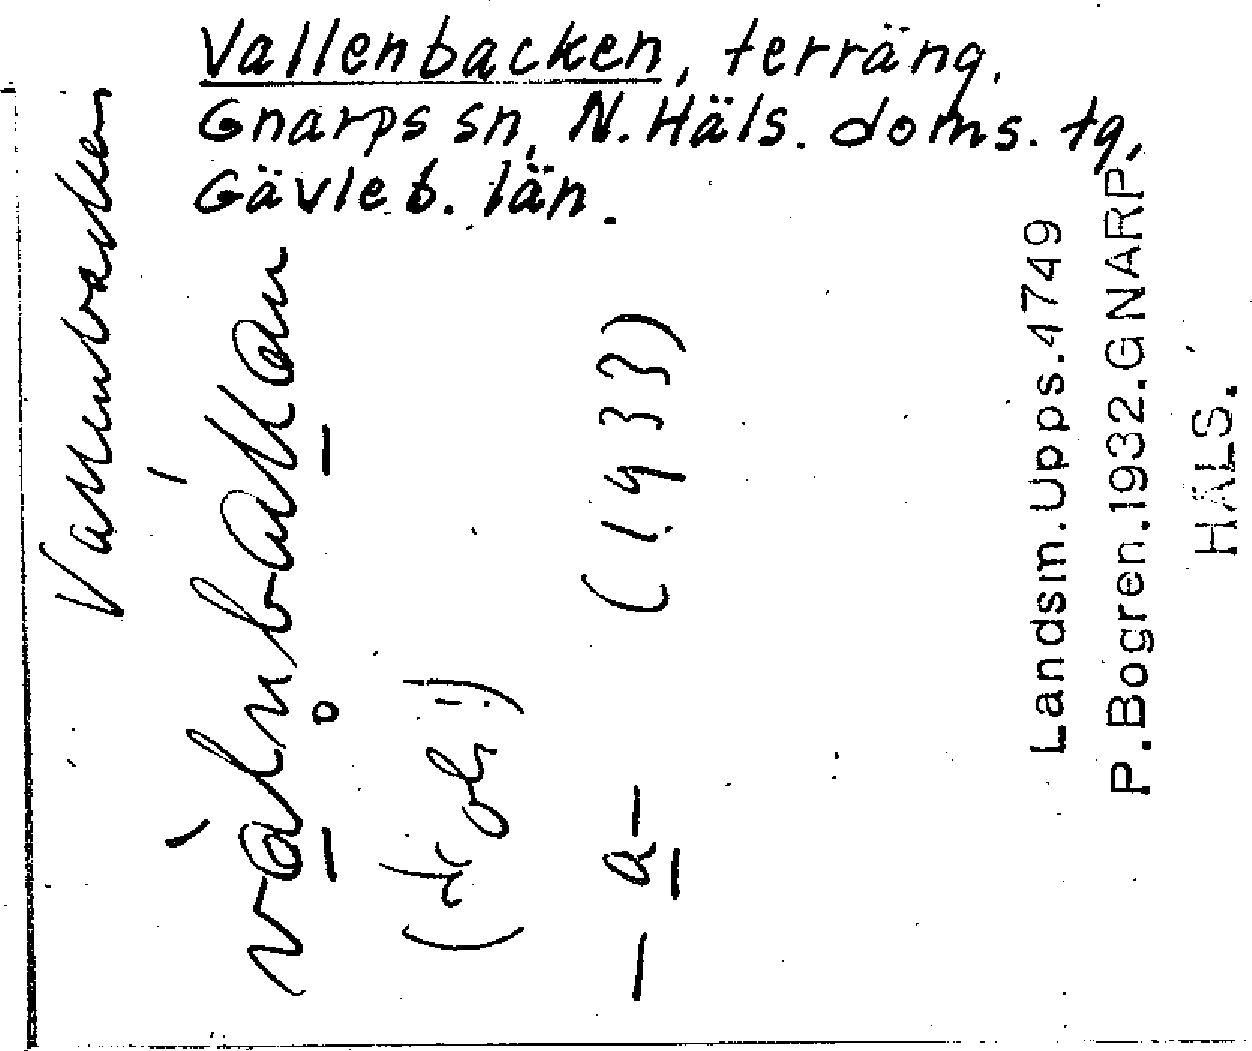 Vallenbacken, terräng.
Gnarps sn, N. Häls. doms. tg,
Gävleb. län.
Vallenbacken
(1933)
— a —
Landsm. Upps. 4749
P. Bogren. 1932. GNARP
HÄLS.